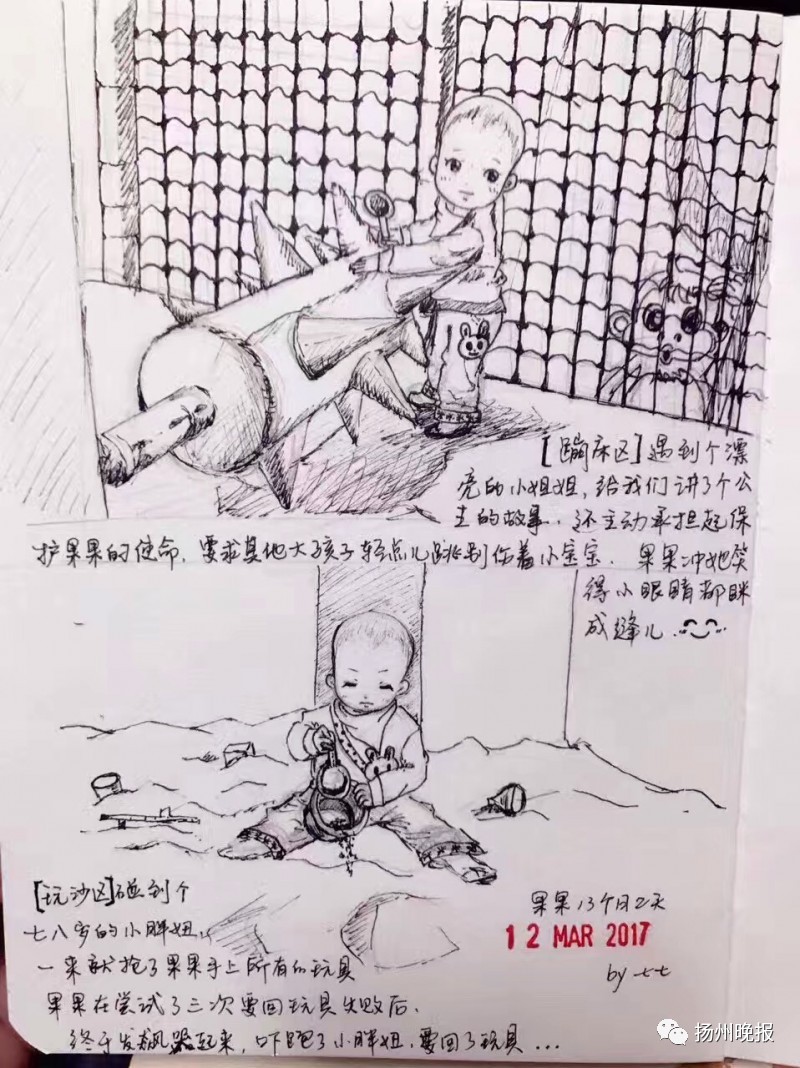 [蹦床区]遇到个漂
亮的小姐姐，给我们讲了个公
主的故事．还主动承担起保
护果果的使命．要求其他大孩子轻点儿跳别伤着小宝宝．果果冲她笑
得小眼睛都眯
成缝儿．
[玩沙区]碰到个
七八岁的小胖妞，
一来就抢了果果手上所有的玩具
果果在尝试了三次要回玩具失败后．
终于发飙哭起来，吓跑了小胖妞，要回了玩具...
果果13个月2天
12 MAR 2017
by 七七
扬州晚报